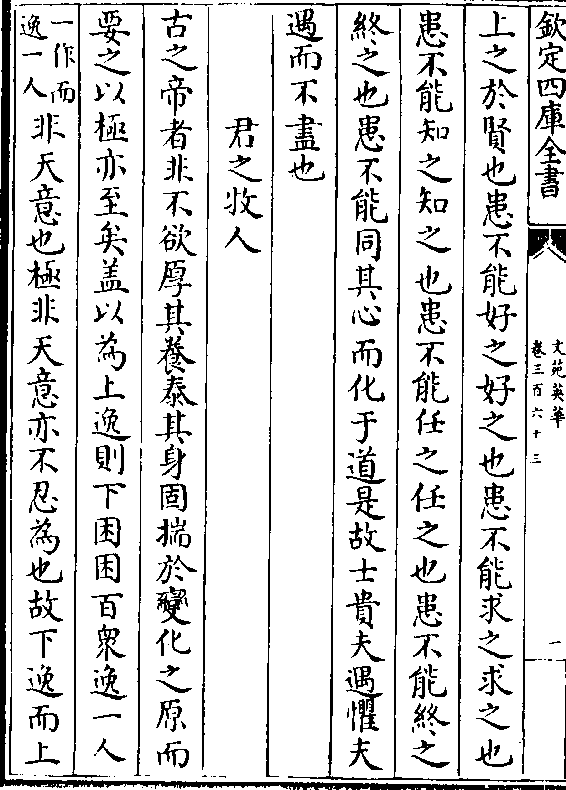 欽定四庫全書
文苑英華
卷三百六十三
一
上之於賢也患不能好之好之也患不能求之求之也
患不能知之知之也患不能任之任之也患不能終之
終之也患不能同其心而化于道是故士貴夫遇懼夫
遇而不盡也
君之牧人
古之帝者非不欲厚其養泰其身固揣於變化之原而
要之以極亦至矣盖以為上逸則下困困百衆逸一人
一作而
逸一人
非天意也極非天意亦不忍為也故下逸而上